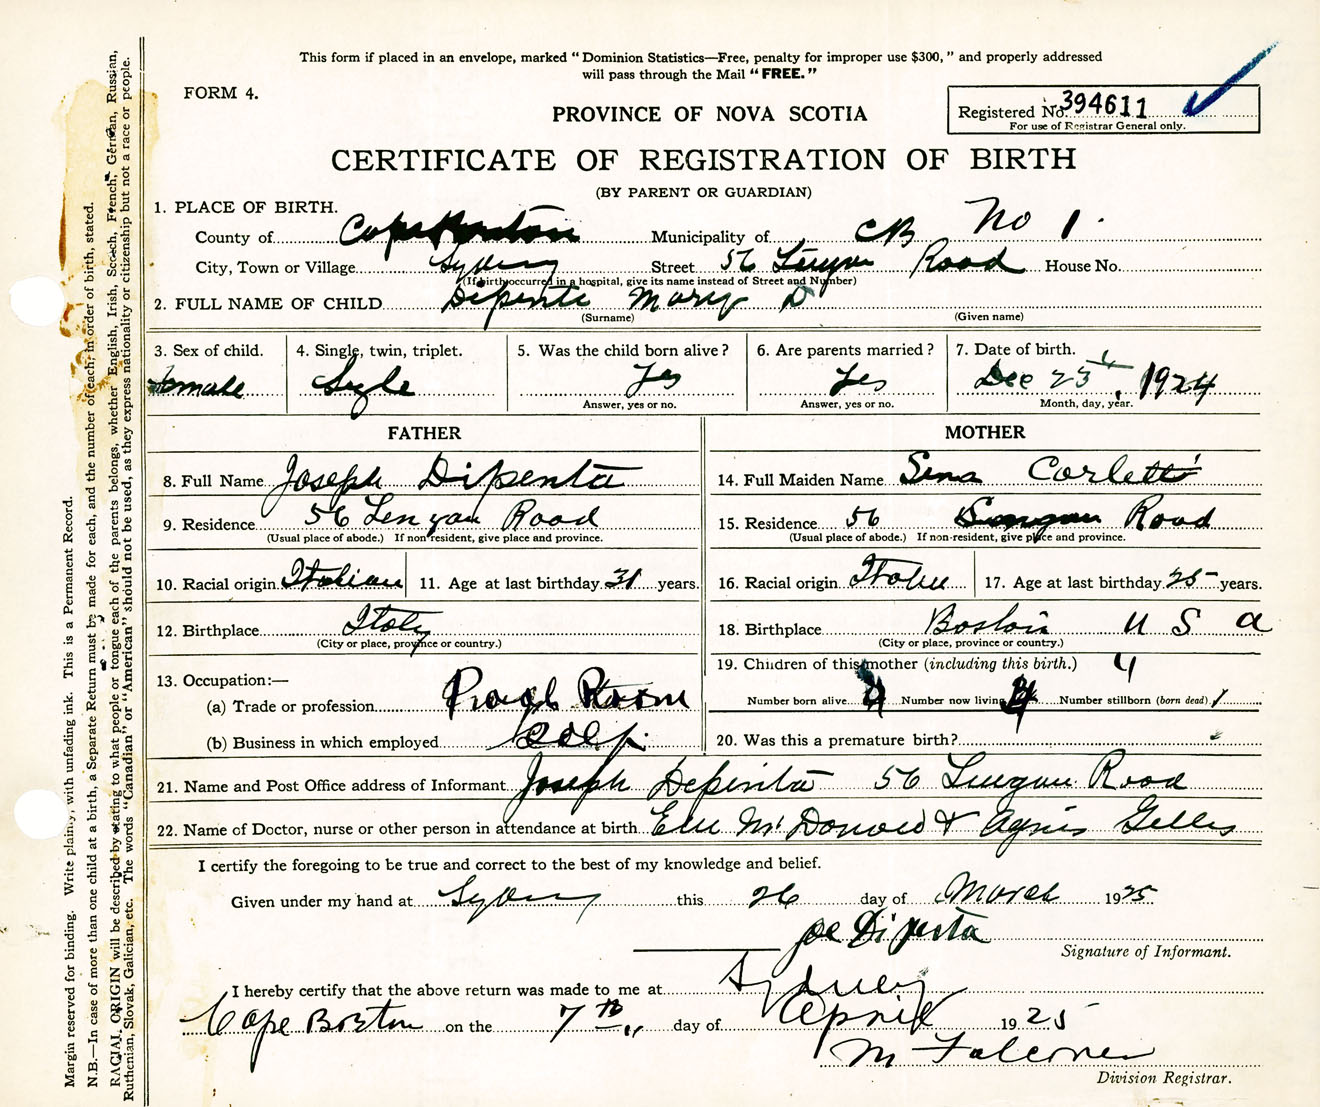 This form if placed in an envelope, marked "Dominion Statistics—Free, penalty for improper use $300," and properly addressed
will pass through the Mail "FREE."
FORM 4.
PROVINCE OF NOVA SCOTIA
Registered No. 394611
For use of Registrar General only.
CERTIFICATE OF REGISTRATION OF BIRTH
(BY PARENT OR GUARDIAN)
1. PLACE OF BIRTH.
County of Cape Breton Municipality of CB No 1.
City, Town or Village Sydney Street 56 Road House No.
(If birth occurred in a hospital, give its name instead of Street and Number)
2. FULL NAME OF CHILD Dipenta Mary D
(Surname) (Given name)
3. Sex of child. 4. Single, twin, triplet. 5. Was the child born alive? 6. Are parents married? 7. Date of birth.
female Yes Yes Dec 23, 1924
Answer, yes or no. Answer, yes or no. Month, day, year.
FATHER MOTHER
8. Full Name Joseph Dipenta 14. Full Maiden Name
9. Residence 56 Road 15. Residence 56 Road
(Usual place of abode.) If non resident, give place and province. (Usual place of abode.) If non-resident, give place and province.
10. Racial origin Italian 11. Age at last birthday 31 years. 16. Racial origin 17. Age at last birthday 25 years.
12. Birthplace Italy 18. Birthplace Boston U S A
(City or place, province or country.) (City or place, province or country.)
19. Children of this mother (including this birth.) 4
13. Occupation:—
(a) Trade or profession Number born alive 4 Number now living 4 Number stillborn (born dead) 1
(b) Business in which employed 20. Was this a premature birth?
21. Name and Post Office address of Informant Joseph Depenta 56 Road
22. Name of Doctor, nurse or other person in attendance at birth McDonald & Agnes Gillis
I certify the foregoing to be true and correct to the best of my knowledge and belief.
Given under my hand at Sydney this 26 day of March 1925
Joe Dipenta
Signature of Informant.
I hereby certify that the above return was made to me at Sydney
Cape Breton on the 7th day of April 1925
M Falconer
Division Registrar.
Margin reserved for binding. Write plainly, with unfading ink. This is a Permanent Record.
N.B.—In case of more than one child at a birth, a Separate Return must be made for each, and the number of each, in order of birth, stated.
RACIAL ORIGIN will be described by stating to what people or tongue each of the parents belongs, whether English, Irish, Scotch, French, German, Russian,
Ruthenian, Slovak, Galician, etc. The words "Canadian" or "American" should not be used, as they express nationality or citizenship but not a race or people.